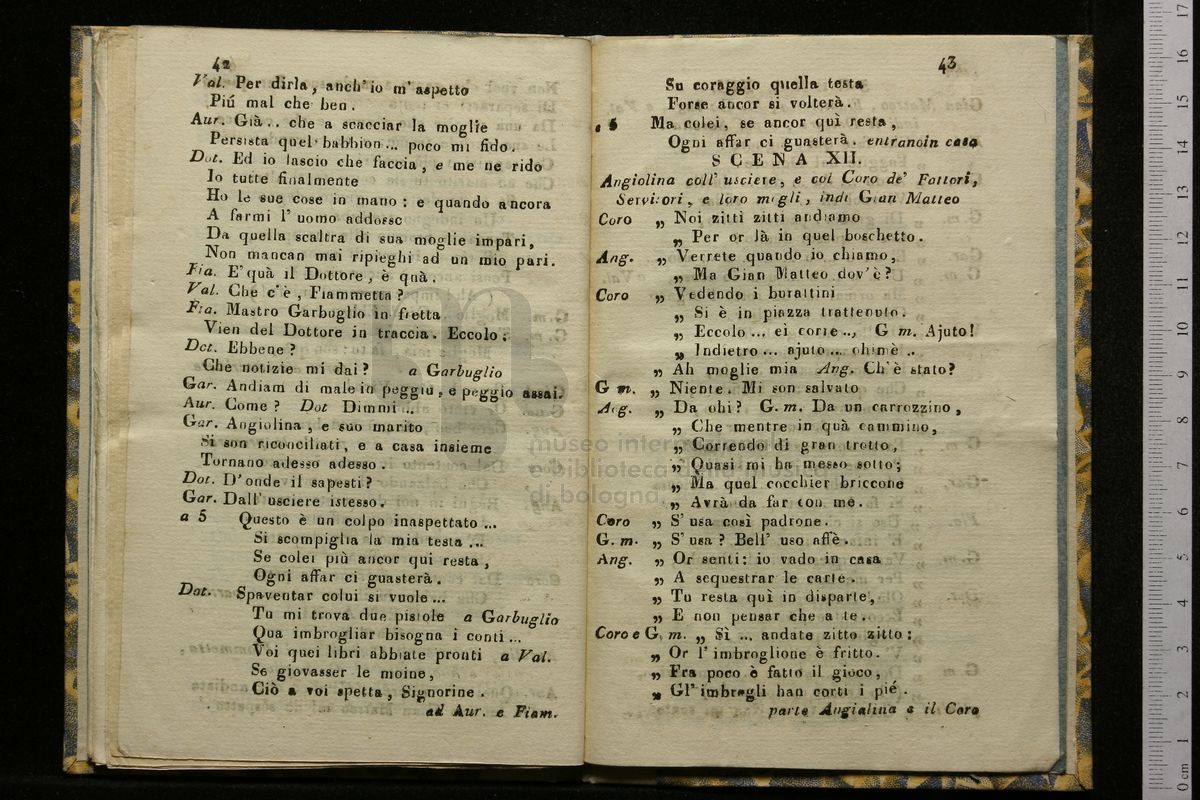 42
Val. Per dirla, anch'io m'aspetto
Piú mal che ben.
Aur. Già.. che a scacciar la moglie
Persista quel babbion... poco mi fido.
Dot. Ed io lascio che faccia, e me ne rido
Io tutte finalmente
Ho le sue cose in mano: e quando ancora
A farmi l'uomo addosso
Da quella scaltra di sua moglie impari,
Non mancan mai ripieghi ad un mio pari.
Fia. E' quà il Dottore, è quà.
Val. Ché c'è, Fiammetta?
Fia. Mastro Garbuglio in fretta
Vien del Dottore in traccia. Eccolo:
Dot. Ebbene?
Che notizie mi dai? a Garbuglio
Gar. Andiam di male in peggio, e peggio assai.
Aur. Come? Dot Dimmi...
Gar. Angiolina, e suo marito
Si son riconciliati, e a casa insieme
Tornano adesso adesso.
Dot. D'onde il sapesti?
Gar. Dall'usciere istesso.
a 5 Questo è un colpo inaspettato...
Si scompiglia la mia testa...
Se colei più ancor qui resta,
Ogni affar ci guasterà.
Dot. Spaventar colui si vuole...
Tu mi trova due pistole a Garbuglio
Qua imbrogliar bisogna i conti...
Voi quei libri abbiate pronti a Val.
Se giovasser le moine,
Ciò a voi spetta, Signorine.
ad Aur. e Fiam.
43
Su coraggio quella testa
Forse ancor si volterà.
a 5 Ma colei, se ancor quì resta,
Ogni affar ci guasterà. entranoin casa
SCENA XII.
Angiolina coll' usciere, e col Coro de' Fattori,
Servitori, e loro mogli, indi Gian Matteo
Coro „ Noi zitti zitti andiamo
„ Per or là in quel boschetto.
Ang. „ Verrete quando io chiamo,
„ Ma Gian Matteo dov'è?
Coro „ Vedendo i burattini
„ Si è in piazza trattenuto.
„ Eccolo... ei corre.., G m. Ajuto!
„ Indietro... ajuto... ohimè ..
„ Ah moglie mia Ang. Ch'è stato?
G m. „ Niente. Mi son salvato
Ang. „ Da chi? G. m. Da un carrozzino,
„ Che mentre in quà cammino,
„ Correndo di gran trotto,
„ Quasi mi ha messo sotto;
„ Ma quel cocchier briccone
„ Avrà da far con me.
Coro „ S'usa così padrone.
G. m. „ S'usa? Bell' uso affè.
Ang. „ Or senti: io vado in casa
„ A sequestrar le carte.
„ Tu resta quì in disparte,
„ E non pensar che a te.
Coro e G. m. „ Sì ... andate zitto zitto:
„ Or l'imbroglione è fritto.
„ Fra poco è fatto il gioco,
„ Gl'imbrogli han corti i piè.
parte Angiolina e il Coro
museo internazionale
e biblioteca della musica
di bologna